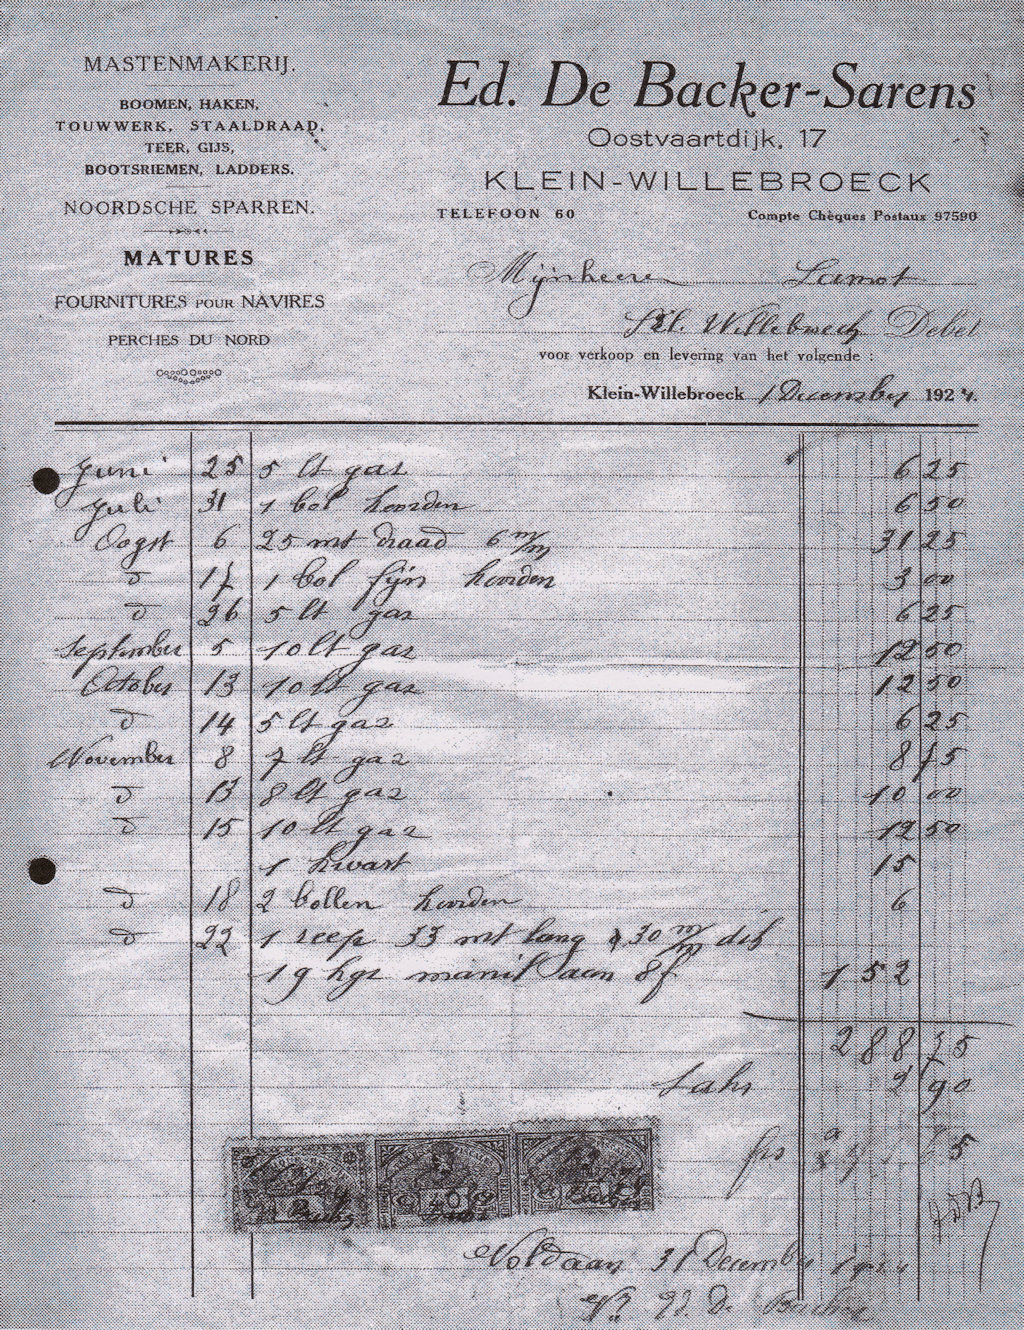 MASTENMAKERIJ.
BOOMEN, HAKEN,
TOUWWERK, STAALDRAAD,
TEER, GIJS,
BOOTSRIEMEN, LADDERS.
NOORDSCHE SPARREN.
MATURES
FOURNITURES POUR NAVIRES
PERCHES DU NORD
Ed. De Backer-Sarens
Oostvaartdijk, 17
KLEIN-WILLEBROECK
TELEFOON 60 Compte Chèques Postaux 97590
Mijnheere Lamot
Willebroeck
voor verkoop en levering van het volgende :
Klein-Willebroeck 1 December 1924.
Juni 25 5 lt gas 6 25
Juli 31 1 bol koorden 6 50
Oogst 6 25 mt draad 6 m/m 31 25
d 17 1 bol fijn koorden 3 00
d 26 5 lt gas 6 25
September 5 10 lt gas 12 50
October 13 10 lt gas 12 50
d 14 5 lt gaz 6 25
November 8 7 lt gaz 8 75
d 13 8 lt gaz 10 00
d 15 10 lt gaz 12 50
1 kwast 15
d 18 2 bollen koorden 6
d 22 1 reep 33 mt lang 30 m/m dik
19 kgs manil aan 8f 152
288 75
2 90
frs
Voldaan 31 December 1924
De Backer